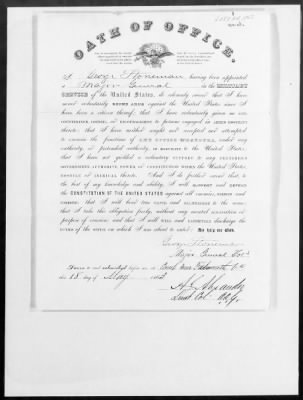 OATH OF OFFICE.
I George Stoneman having been appointed
Major General in the MILITARY
SERVICE of the United States, do solemnly swear that I have
never voluntarily BORNE ARMS against the United States since I
have been a citizen thereof; that I have voluntarily given no AID,
COUNTENANCE, COUNSEL, or ENCOURAGEMENT to persons engaged in ARMED HOSTILITY
thereto; that I have neither sought nor accepted nor attempted
to exercise the functions of ANY OFFICE WHATEVER, under any
authority, or pretended authority, in HOSTILITY to the UNITED STATES;
that I have not yielded a voluntary SUPPORT to ANY PRETENDED
GOVERNMENT, AUTHORITY, POWER or CONSTITUTION WITHIN the UNITED STATES,
HOSTILE or INIMICAL thereto. And I do further swear that, to
the best of my knowledge and ability, I will SUPPORT and DEFEND
the CONSTITUTION OF THE UNITED STATES against all ENEMIES, FOREIGN and
DOMESTIC; that I will bear TRUE FAITH and ALLEGIANCE to the same;
that I take this obligation freely, without any mental reservation or
purpose of evasion; and that I will WELL and FAITHFULLY discharge the
DUTIES OF THE OFFICE on which I am about to enter: So help me God.
George Stoneman
Major General Vols
Sworn to and subscribed before me, at Camp near Falmouth Va
this 18 day of May 1863